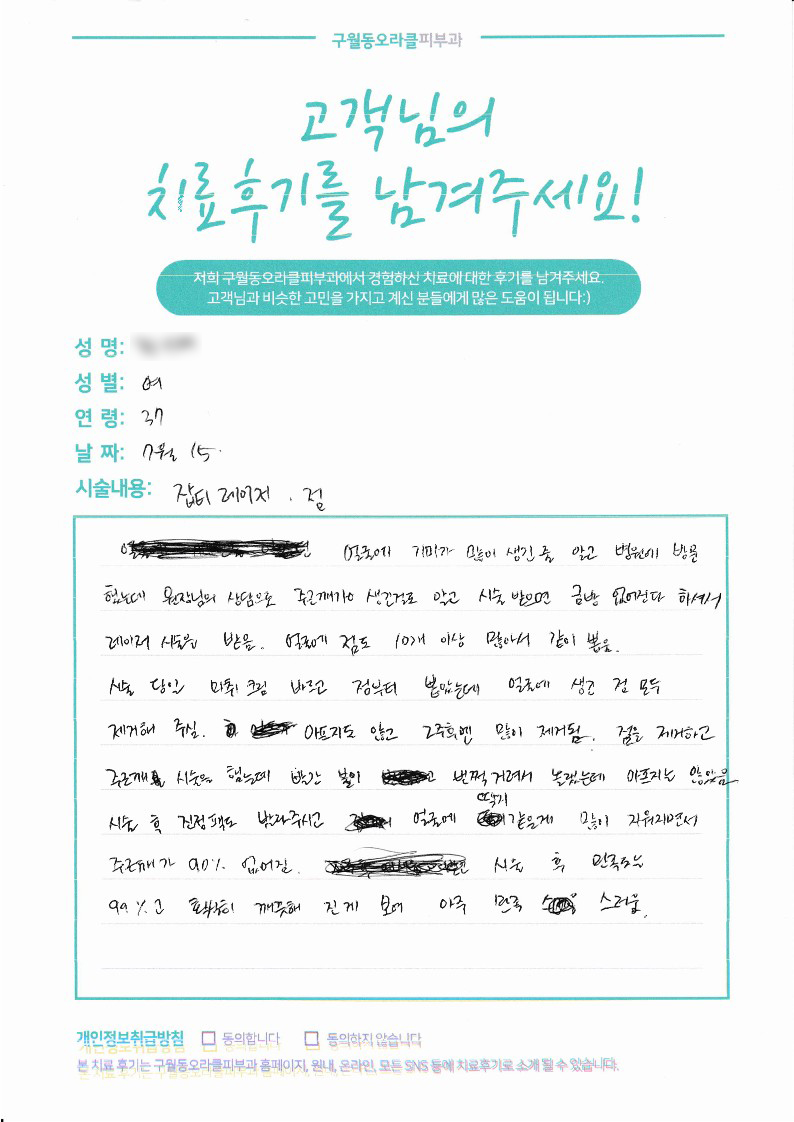 구월동오라클피부과
고객님의
치료후기를 남겨주세요!
저희 구월동오라클피부과에서 경험하신 치료에 대한 후기를 남겨주세요.
고객님과 비슷한 고민을 가지고 계신 분들에게 많은 도움이 됩니다:)
성 명:
성 별: 여
연 령: 37
날 짜: 7월 15.
시술내용: 잡티 레이저 . 점
얼굴에 기미가 많이 생긴줄 알고 병원에 방문
했는데 원장님의 상담으로 주근깨가 생긴걸로 알고 시술 받으면 금방 없어진다 하셔서
레이저 시술을 받음. 얼굴에 점도 10개 이상 많아서 같이 뽑음.
시술 당일 마취 크림 바르고 점부터 뽑았는데 얼굴에 생긴 점 모두
제거해 주심. 아프지도 않고 2주후엔 많이 제거됨. 점을 제거하고
주근깨 시술을 했는데 빨간 빛이 번쩍 거려서 놀랬는데 아프지는 않았음
시술 후 진정팩도 발라주시고 얼굴에 딱지 같은게 많이 지워지면서
주근깨가 90% 없어짐. 시술 후 만족도는
99%고 깨끗해 진게 보여 아주 만족 스러움.
개인정보취급방침 □ 동의합니다 □ 동의하지 않습니다
본 치료 후기는 구월동오라클피부과 홈페이지, 원내, 온라인, 모든 SNS 등에 치료후기로 소개 될 수 있습니다.